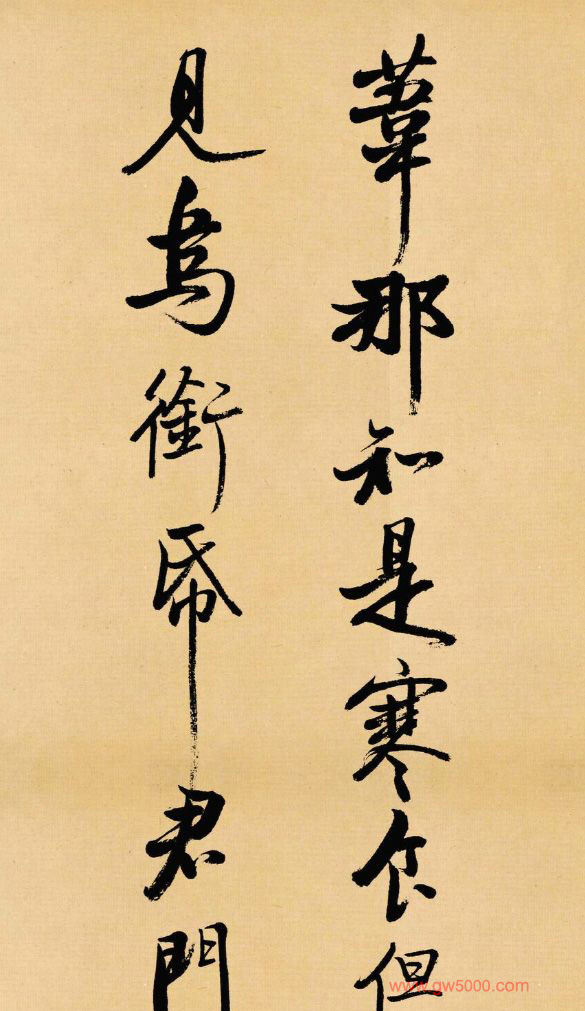 葦那知是寒食但
見烏銜帋君門
www.gw5000.com